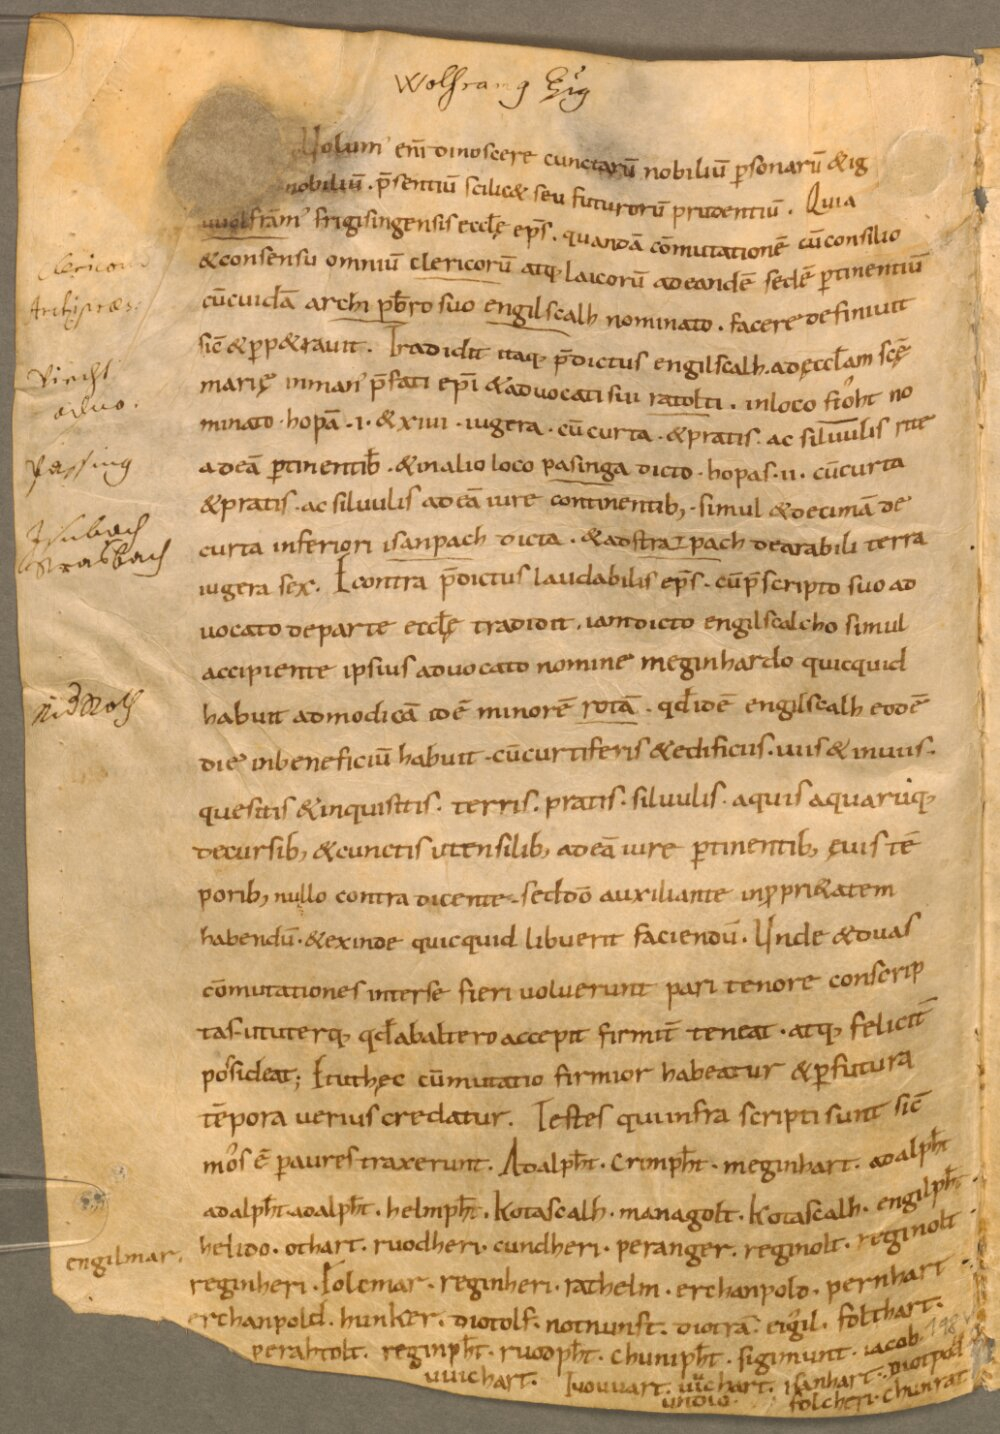 Wolfrang
Uolum' eni dinoscere cunctarū nobiliū psonarū & ig
nobiliū . psentiū scilic& seu futurorū prudentiū . Quia
uuolfrām' frigisingensis eccłę eps̄ . quandā cōmutationē cū consilio
& consensu omniū clericorū atq; laicorū ad eandē sedē ptinentiū
cū cuidā archi pb̄ro suo engilscalh nominato . facere definiuit
sic̄ & ppetrauit . Tradidit itaq; p̄dictus engilscalh . ad ęccłam scę̄
marię in man' p̄fati epi & aduocati sui ratolti . in loco fioht no
minato . hopā . I . & xiiii . iugera . cū curta . & pratis . ac siluulis rite
ad eā ptinentib; . & in alio loco pasinga dicto . hopas . II . cū curta
& pratis . ac siluulis ad eā iure continentib; . simul & decimā de
curta inferiori isanpach dicta . & ad strazpach de arabili terra
iugera sex . E contra p̄dictus laudabilis eps̄ . cū p̄scripto suo ad
uocato de parte eccłę tradidit . iam dicto engilscalcho simul
accipiente ipsius aduocato nomine meginhardo quicquid
habuit ad modicā id ē minorē rotā . qđ idē engilscalh eodē
die in beneficiū habuit . cū curtiferis & edificiis . uiis & inuiis .
quesitis & inquisitis . terris . pratis . siluulis . aquis aquarūq;
decursib; & cunctis utensilib; ad eā iure ptinentib; ęuis tē
porib; nullo contra dicente . sed dō auxiliante in ppri&atem
habendū . & exinde quicquid libuerit faciendū . Unde & duas
cōmutationes inter se fieri uoluerunt pari tenore conscrip
tas . ut uterq; qđ ab altero accepit firmit̄ teneat . atq; felicit̄
possideat ; Et ut hęc cūmutatio firmior habeatur & p futura
tēpora uerius credatur . Testes qui infra scripti sunt sic̄
mos ē p aures traxerunt . Adalpht . crimpht . meginhart . adalpht
adalpht . adalpht . helmpht . Kotascalh . managolt . Kotascalh . engilpht .
helido . othart . ruodheri . cundheri . peranger . reginolt . reginolt
engilmar .
reginheri . Folcmar . reginheri . rathelm . erchanpold . pernhart
erchanpold . hunker . diotolf . notnunft . diotrā . eigil . folthart .
perahtolt . reginpht . ruodpht . chunipht . sigimunt . iacob
uuichart . Iuouuart . uuichart . isanhart . diotpold
undio . folcheri . chunrat
Clericorū
Archipræs:
Viecht
aduo.
Passing
Isnbach
Strasbach